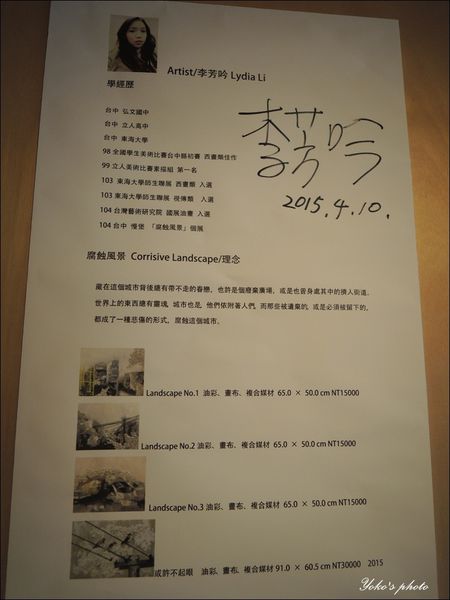 Artist/李芳吟 Lydia Li
學經歷
李芳吟
2015.4.10.
台中 弘文國中
台中 立人高中
台中 東海大學
98 全國學生美術比賽台中縣初賽 西畫類佳作
99 立人美術比賽素描組 第一名
103 東海大學師生聯展 西畫類 入選
103 東海大學師生聯展 視傳類 入選
104 台灣藝術研究院 國展油畫 入選
104 台中 慢堡 「腐蝕風景」個展
腐蝕風景 Corrisive Landscape/理念
藏在這個城市背後總有帶不走的眷戀，也許是個廢棄廣場，或是也曾身處其中的擠人街道，
世界上的東西總有靈魂，城市也是，他們依附著人們，而那些被遺棄的，或是必須被留下的，
都成了一種悲傷的形式，腐蝕這個城市。
Landscape No.1 油彩、畫布、複合媒材 65.0 × 50.0 cm NT15000
Landscape No.2 油彩、畫布、複合媒材 65.0 × 50.0 cm NT15000
Landscape No.3 油彩、畫布、複合媒材 65.0 × 50.0 cm NT15000
或許不起眼 油彩、畫布、複合媒材 91.0 × 60.5 cm NT30000 2015
Yoko's photo